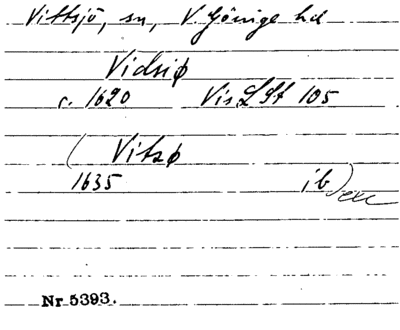 Vittsjö, sn, V. Göinge hd
Vidsiø
c. 1620 Vis LSt 105
( Vitsø
1635 ib)
Nr 5393.